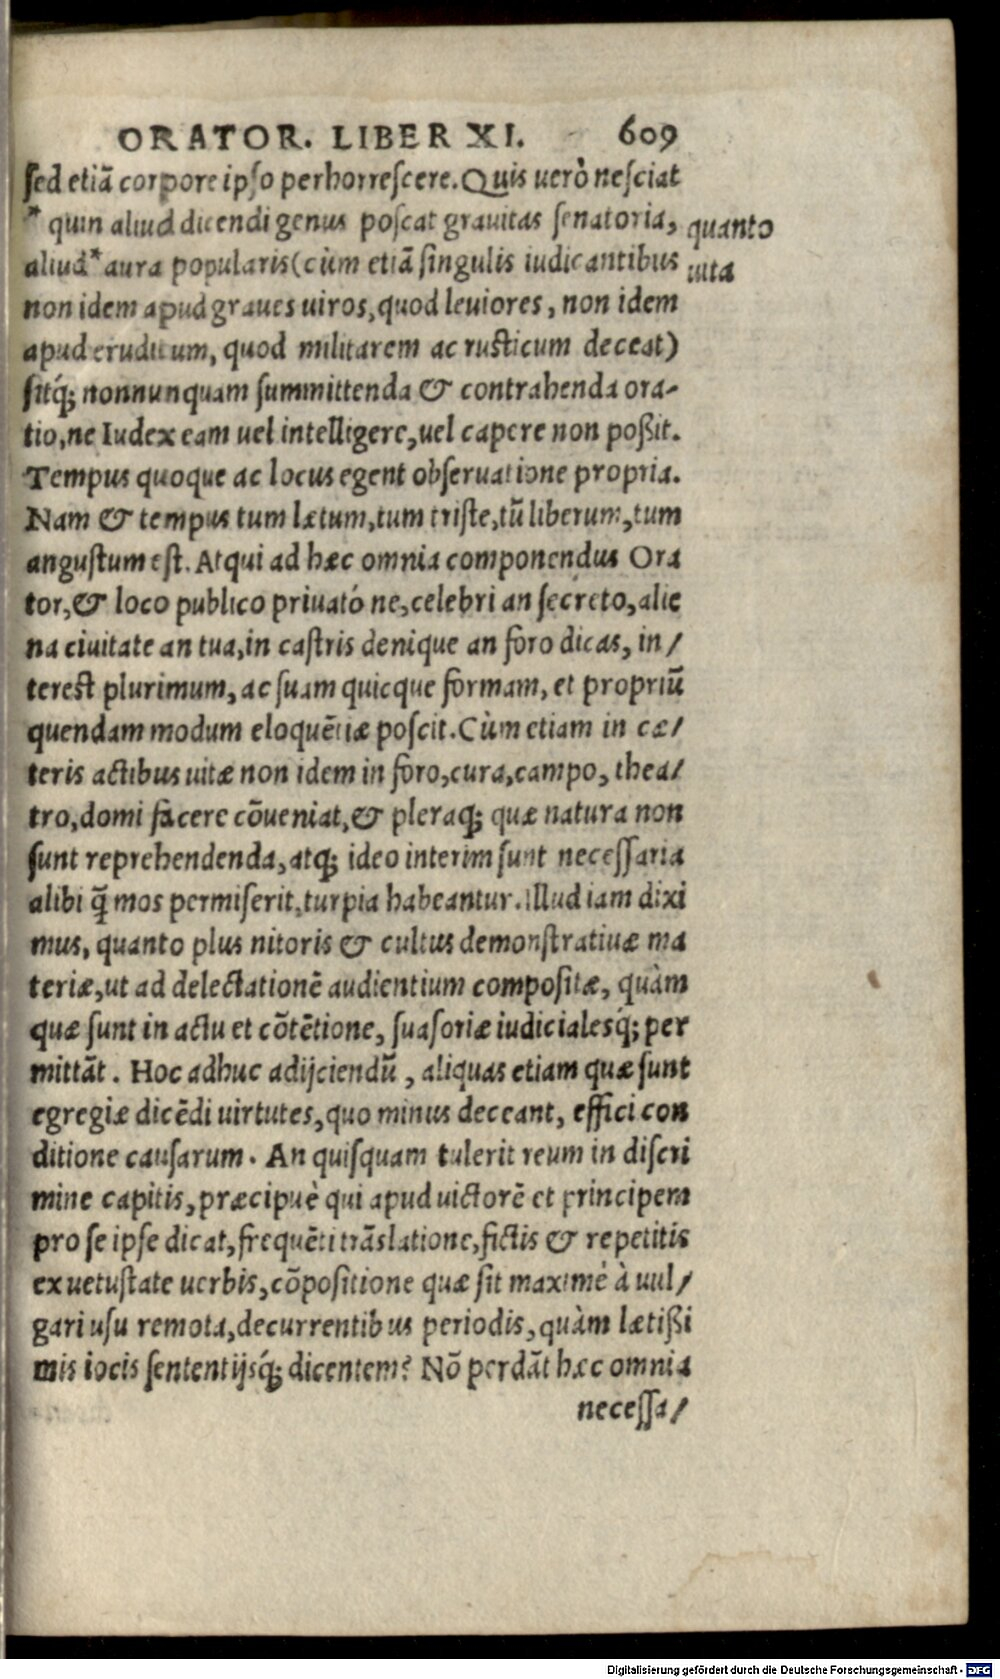 ORATOR. LIBER XI. 609
sed etiã corpore ipso perhorrescere. Quis uerò nesciat
* quin aliud dicendi genus poscat grauitas senatoria, quanto
aliud * aura popularis (cùm etiã singulis iudicantibus uita
non idem apud graues uiros, quod leuiores, non idem
apud eruditum, quod militarem ac rusticum deceat)
sitq́; nonnunquam summittenda & contrahenda ora-
tio, ne Iudex eam uel intelligere, uel capere non poßit.
Tempus quoque ac locus egent obseruatione propria.
Nam & tempus tum lætum, tum triste, tũ liberum, tum
angustum est. Atqui ad hæc omnia componendus Ora
tor, & loco publico priuató ne, celebri an secreto, alie
na ciuitate an tua, in castris denique an foro dicas, in/
terest plurimum, ac suam quicque formam, et propriũ
quendam modum eloquẽtiæ poscit. Cùm etiam in cæ/
teris actibus uitæ non idem in foro, cura, campo, thea/
tro, domi facere cõueniat, & pleraq; quæ natura non
sunt reprehendenda, atq; ideo interim sunt necessaria
alibi q̃ mos permiserit, turpia habeantur. Illud iam dixi
mus, quanto plus nitoris & cultus demonstratiuæ ma
teriæ, ut ad delectationẽ audientium compositæ, quàm
quæ sunt in actu et cõtẽtione, suasoriæ iudicialesq́; per
mittãt. Hoc adhuc adijciendũ, aliquas etiam quæ sunt
egregiæ dicẽdi uirtutes, quo minus deceant, effici con
ditione causarum. An quisquam tulerit reum in discri
mine capitis, præcipuè qui apud uictorẽ et principem
pro se ipse dicat, frequẽti trãslatione, fictis & repetitis
ex uetustate uerbis, cõpositione quæ sit maximè à uul/
gari usu remota, decurrentibus periodis, quàm lætißi
mis iocis sententijsq́; dicentem? Nõ perdãt hæc omnia
necessa/
Digitalisierung gefördert durch die Deutsche Forschungsgemeinschaft - DFG